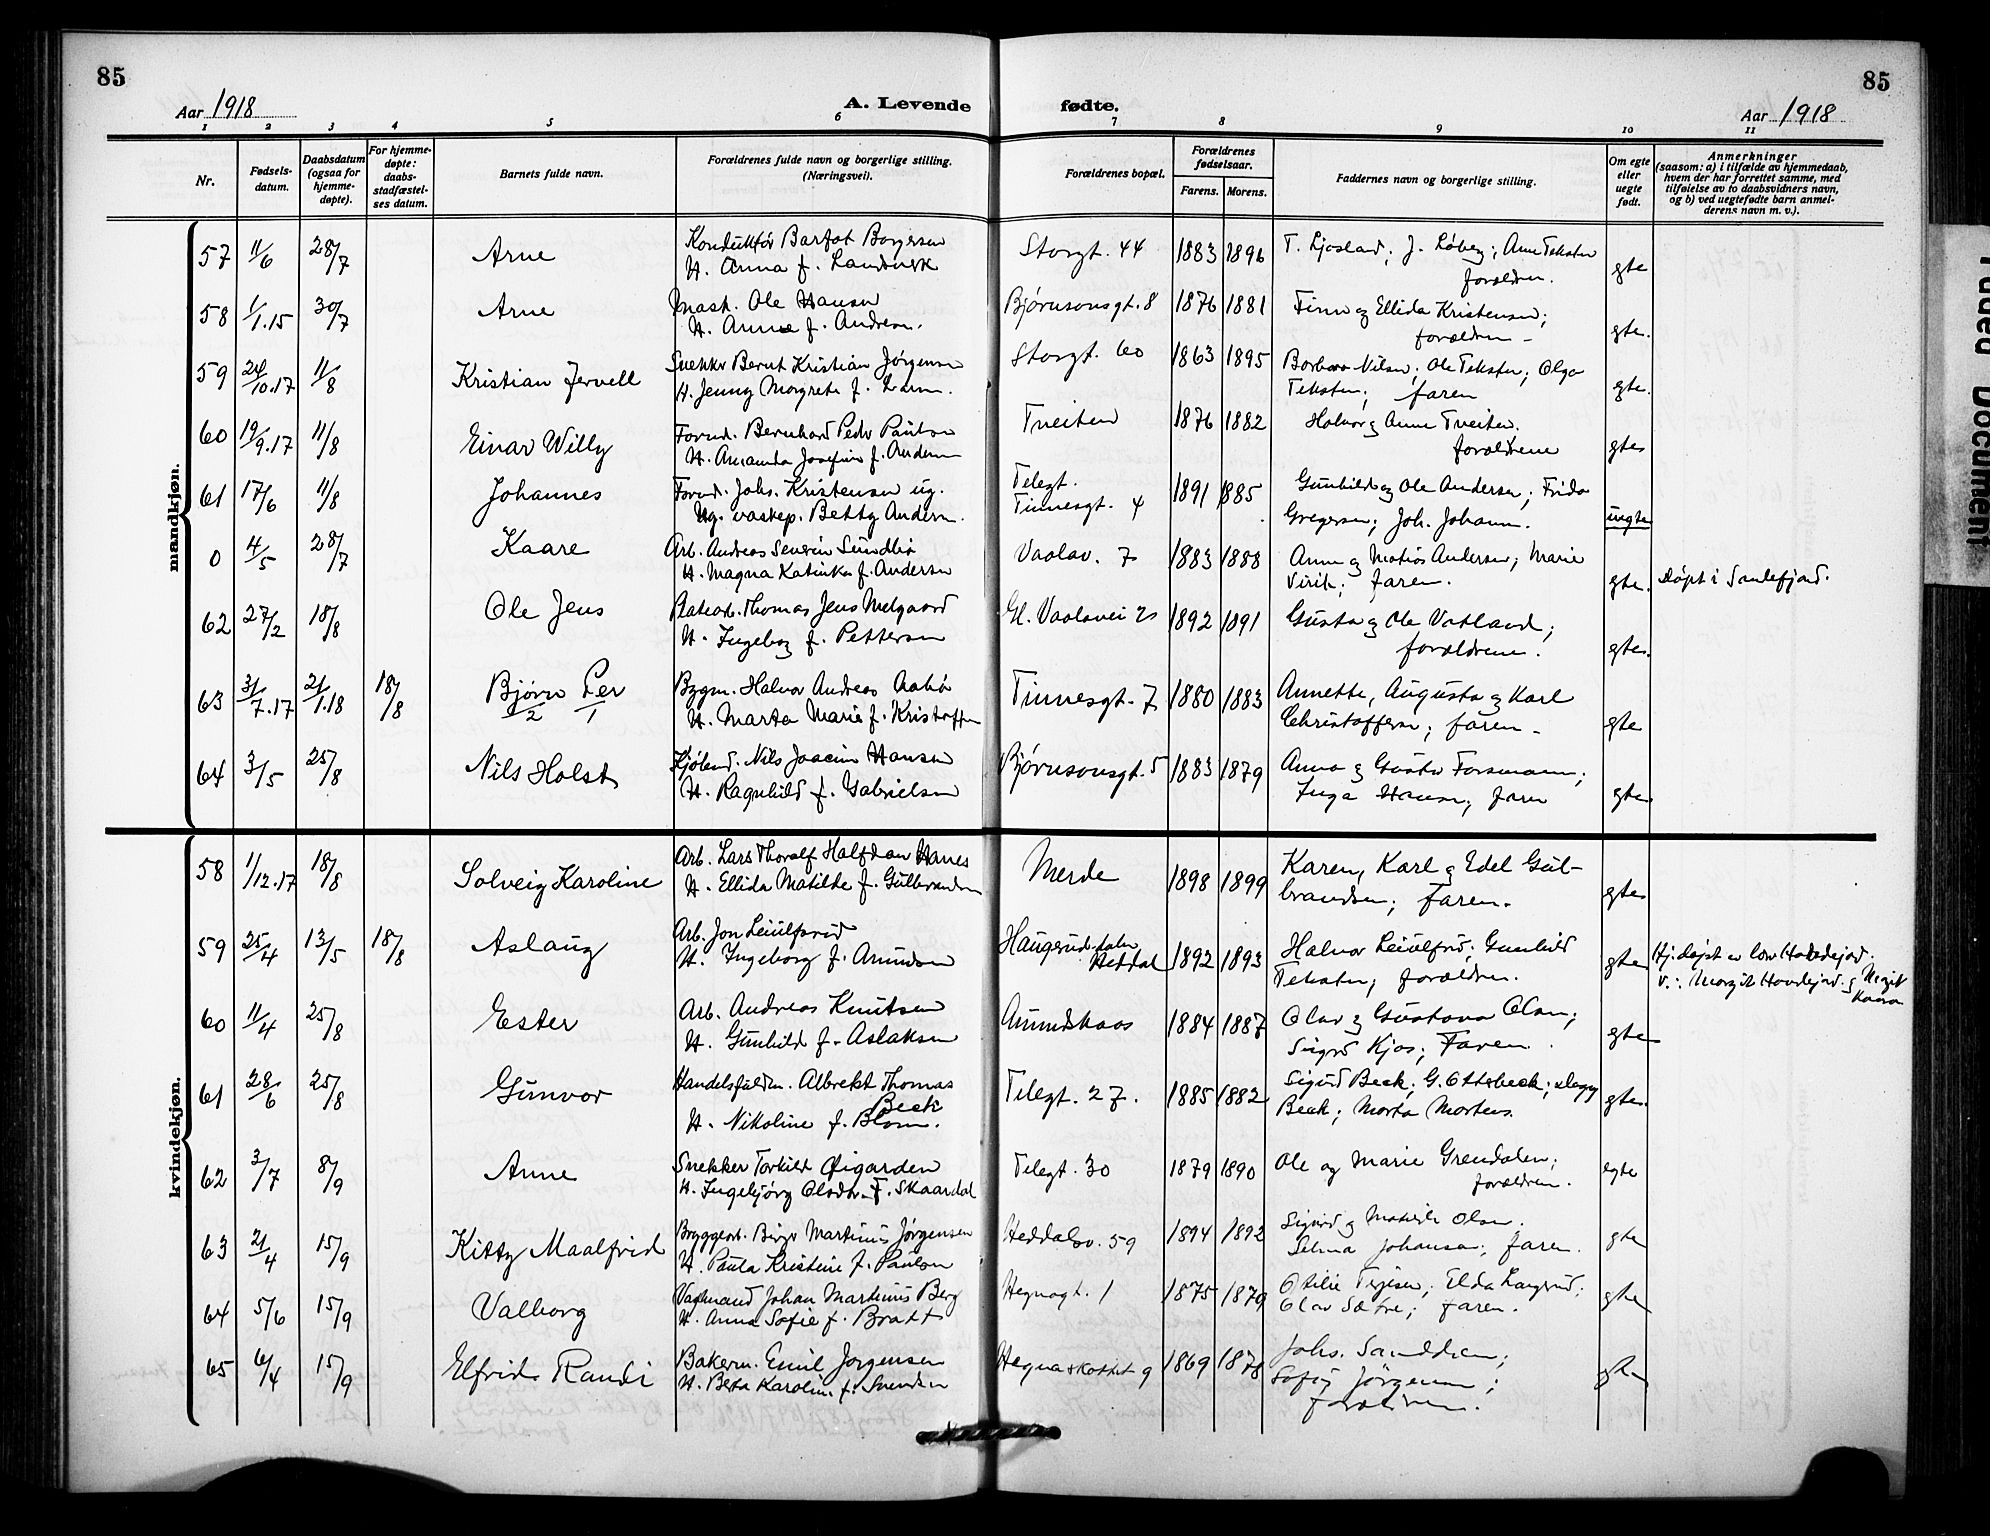 85
85
Aar 1918
A. Levende
fødte.
Aar 1918
1 2 3 4 5 6 7 8 9 10 11
Nr.
Fødsels-
datum.
Daabsdatum
(ogsaa for
hjemme-
døpte).
For hjemme-
døpte:
daabs-
stadfæstel-
ses datum.
Barnets fulde navn.
Forældrenes fulde navn og borgerlige stilling.
(Næringsvei).
Forældrenes bopæl.
Forældrenes
fødselsaar.
Farens. Morens.
Faddernes navn og borgerlige stilling.
Om egte
eller
uegte
født.
Anmerkninger
(saasom: a) i tilfælde av hjemmedaab,
hvem der har forrettet samme, med
tilføielse av to daabsvidners navn,
og b) ved uegtefødte barn anmel-
derens navn m. v.).
mandkjøn.
57 11/6 28/7 Arne Konduktør Barfot Borgersen Storgt. 44 1883 1896 T. Ljosland; J. Løberg; Anne Teksten
H. Anna f. Landsverk forældren. gte
58 1/1.15 30/7 Arne Mask. Ole Hansen Bjørnsonsgt. 8 1876 1881 Finn og Ellida Kristensen;
H. Anna f. Andersen. forældren gte.
59 24/10.17 11/8 Kristian Jervell Snekker Bernt Kristian Jørgensen Storgt. 60 1863 1895 Barbara Nilsen; Ole Teksten; Olga
H. Jenny Margrete f. Teksten; faren gte.
60 19/9.17 11/8 Einar Willy Formd. Bernhard Peder Paulsen Tveiten 1876 1882 Halvor og Anne Tveiten.
H. Amanda Josefine f. Andersen forældrene gtes
61 17/6 11/8 Johannes Formd. Johs. Kristensen ug. Telegt. 1891 1885 Gunhild og Ole Andersen; Frida
Ug. vaskep. Betty Andersen. Tinnesgt. 4 Gregersen; Joh. Johann. uegte
0 4/5 28/7 Kaare Arb. Andreas Severin Sundbø Vaalav. 7 1883 1888 Anne og Matios Andersen; Marie
H. Magna Katinka f. Andersen faren. gte. døpt i Sandefjord.
62 27/2 18/8 Ole Jens Platearb. Thomas Jens Melgaard Gl. Vaalavei 1892 1891 Gusta og Ole Vatland;
H. Ingeborg f. Pettersen forældrene. gtes.
63 31/7.17 21/1.18 18/8 Bjørn Per Bygm. Halvor Andreas Tinnesgt. 7 1880 1883 Annette, Augusta og Karl
2 1 H. Marta Marie f. Kristoffersen Christoffersen; faren gte
64 3/5 25/8 Nils Holst Kjøbmd. Nils Joacim Hansen Bjørnsonsgt. 5 1883 1879 Anna og Gustav Forsmann;
H. Ragnhild f. Gabrielsen Inga Hansen; faren gtes
kvindekjøn.
58 1/12.17 18/8 Solveig Karoline Arb. Lars Thoralf Halfdan Hanes Merde 1898 1899 Karen, Karl og Edel Gul-
H. Ellida Matilde f. Gulbrandsen brandsen; Faren. gtes
59 25/4 13/5 18/8 Aslaug Arb. Jon Leiulfsrud Haugerudsdalen 1892 1893 Halvor Leiulfsrud; Gunhild Hj. døpt av
H. Ingeborg f. Amundsen Heddal Teksten; forældren. gte v.: Margit Hovdejord og
60 11/4 25/8 Ester Arb. Andreas Knutsen Amundskaas 1884 1887 Olav og Gustava Olsen;
H. Gunhild f. Aslaksen Sigrd Kjos; Faren. gte
61 28/6 25/8 Gunvor Handelsfuldm. Albrekt Thomas Telegt. 27. 1885 1882 Sigurd Beck; G. Ottobeck; Dagny
Beck
H. Nikoline f. Blom. Beck; Marta Mortens. gtes.
62 3/7 8/9 Anne Snekker Torkild Øigarden Telegt. 30 1879 1890 Ole og Marie Grendalen;
H. Ingebjørg Olsdtr. f. Skaardal forældren. egte
63 21/4 15/9 Kitty Maalfrid Bryggearb. Birger Martinius Jørgensen Heddalsv. 59 1894 1892 Sigurd og Matilde Olsen.
H. Paula Kristine f. Paulsen Selma Johansen; faren. gte
64 5/6 15/9 Valborg Vagtmand Johan Martinius Berg Hegnagt. 1 1875 1879 Otilie Terjesen; Elda Langrud;
H. Anna Sofie f. Bratt Olav Sætre; faren. gte
65 6/4 15/9 Elfrid Randi Bakerm. Emil Jørgensen Hegnaskottet 9 1869 1878 Johs. Sanddien;
H. Berta Karoline f. Svendsen Sofie Jørgensen;
forældren. gte